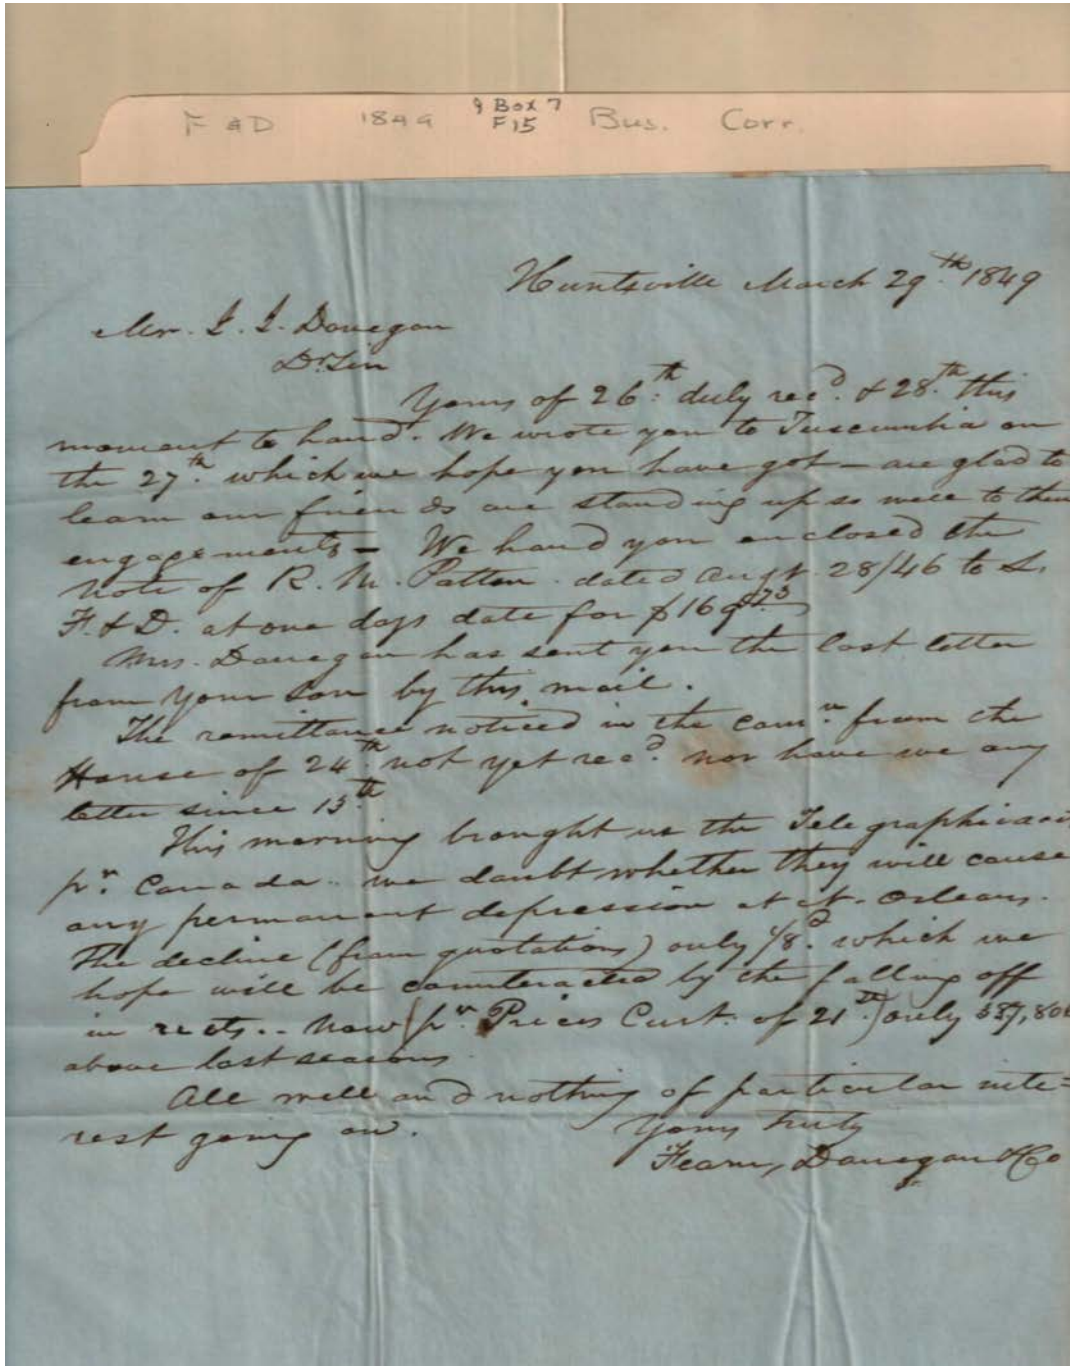 F & D 1849 9 Box 7 F15 Bus. Corr.
Huntsville March 29.th 1849
Mr. J. J. Donegan
Dr Sir
Yours of 26.th duly recd. & 28.th this
moment to hand. We wrote you to Tuscumbia on
the 27.th which we hope you have got – are glad to
learn our friends are standing up so well to their
engagements – We hand you enclosed the
note of R. M. Patton dated Augt. 28/46 to S.
F. & D. at one days date for $169
Mrs. Donegan has sent you the last letter
from your son by this mail.
The remittance noticed in the comn. from the
House of 24.th not yet recd. nor have we any
letter since 15.th
This morning brought us the Telegraphic
pr. Canada – we doubt whether they will cause
any permanent depression at N. Orleans.
The decline (from quotations) only 1/8d. which we
hope will be counteracted by the falling off
in rects. – now (pr. Prices Curt. of 21st.) only
above last seasons
All well and nothing of particular inte=
rest going on. Yours truly
Fearn, Donegan & Co